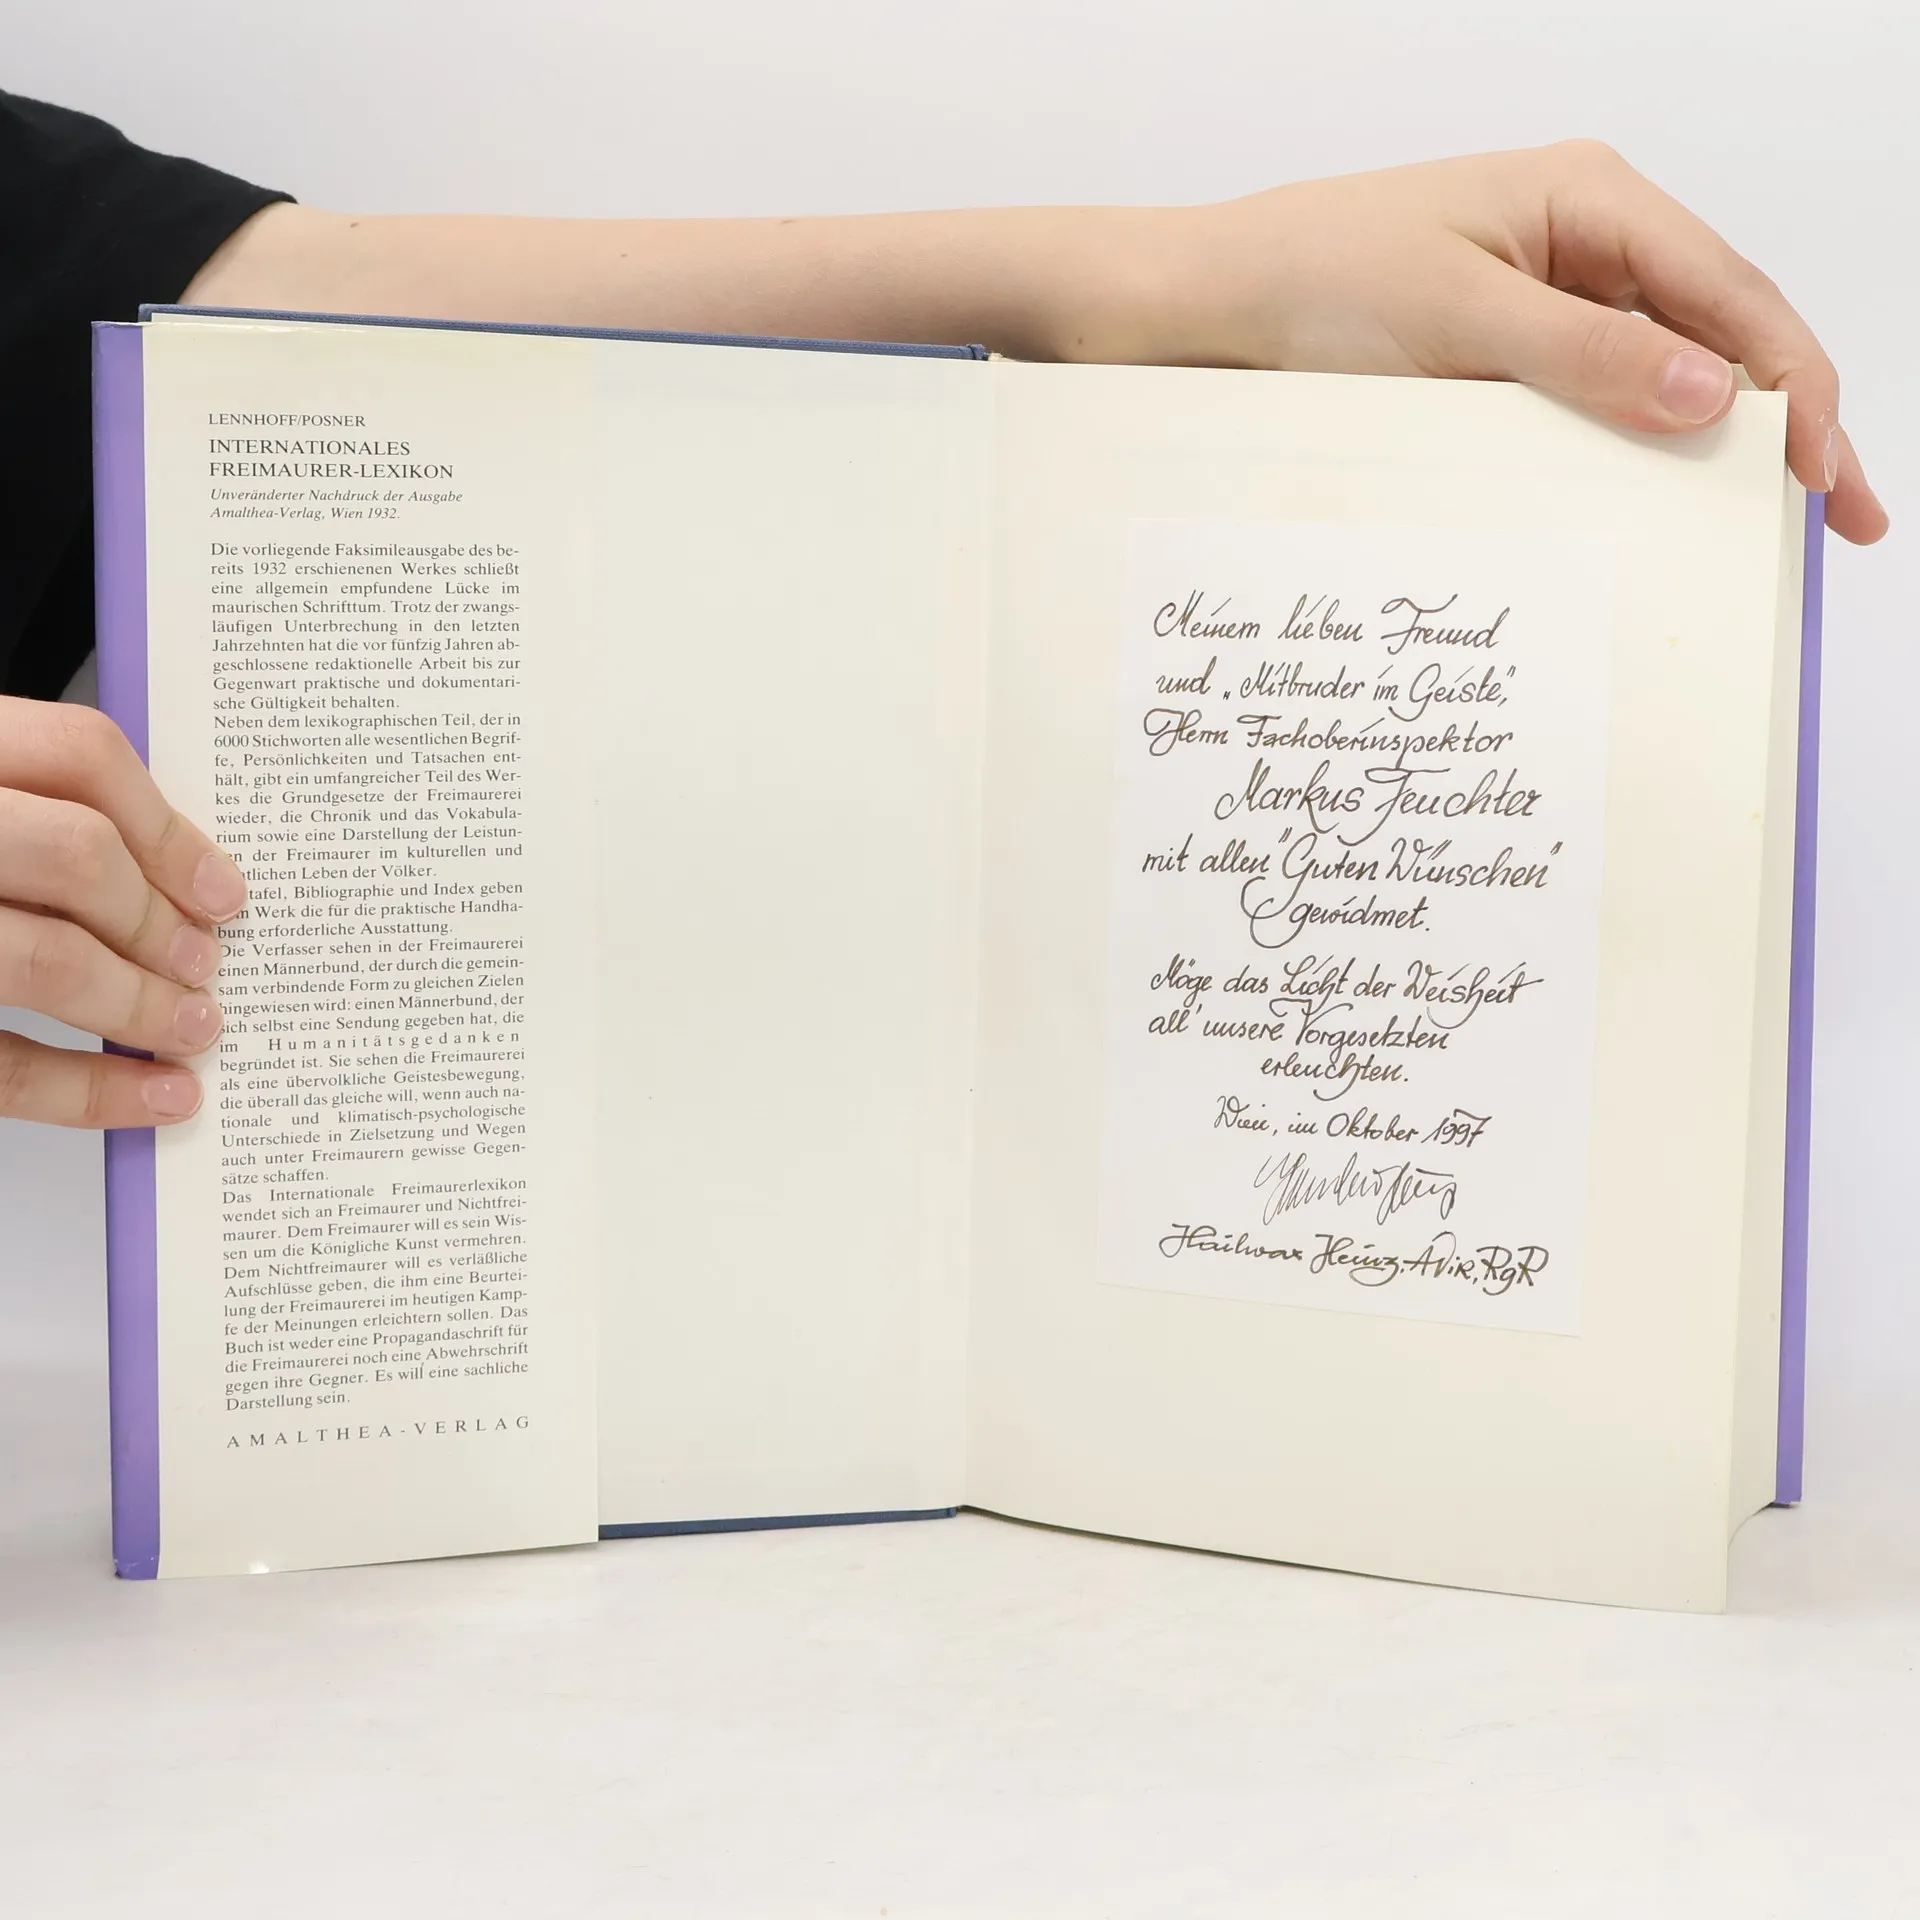 LENNHOFF/POSNER
INTERNATIONALES
FREIMAURER-LEXIKON
Unveränderter Nachdruck der Ausgabe
Amalthea-Verlag, Wien 1932.
Die vorliegende Faksimileausgabe des be-
reits 1932 erschienenen Werkes schließt
eine allgemein empfundene Lücke im
maurischen Schrifttum. Trotz der zwangs-
läufigen Unterbrechung in den letzten
Jahrzehnten hat die vor fünfzig Jahren ab-
geschlossene redaktionelle Arbeit bis zur
Gegenwart praktische und dokumentari-
sche Gültigkeit behalten.
Neben dem lexikographischen Teil, der in
6000 Stichworten alle wesentlichen Begrif-
fe, Persönlichkeiten und Tatsachen ent-
hält, gibt ein umfangreicher Teil des Wer-
kes die Grundgesetze der Freimaurerei
wieder, die Chronik und das Vokabula-
rium sowie eine Darstellung der Leistun-
en der Freimaurer im kulturellen und
tlichen Leben der Völker.
tafel, Bibliographie und Index geben
Werk die für die praktische Handha-
bung erforderliche Ausstattung.
Die Verfasser sehen in der Freimaurerei
einen Männerbund, der durch die gemein-
sam verbindende Form zu gleichen Zielen
hingewiesen wird: einen Männerbund, der
sich selbst eine Sendung gegeben hat, die
im Humanitätsgedanken
begründet ist. Sie sehen die Freimaurerei
als eine übervolkliche Geistesbewegung,
die überall das gleiche will, wenn auch na-
tionale und klimatisch-psychologische
Unterschiede in Zielsetzung und Wegen
auch unter Freimaurern gewisse Gegen-
sätze schaffen.
Das Internationale Freimaurerlexikon
wendet sich an Freimaurer und Nichtfrei-
maurer. Dem Freimaurer will es sein Wis-
sen um die Königliche Kunst vermehren.
Dem Nichtfreimaurer will es verläßliche
Aufschlüsse geben, die ihm eine Beurtei-
lung der Freimaurerei im heutigen Kamp-
fe der Meinungen erleichtern sollen. Das
Buch ist weder eine Propagandaschrift für
die Freimaurerei noch eine Abwehrschrift
gegen ihre Gegner. Es will eine sachliche
Darstellung sein.
AMALTHEA-VERLAG
Meinem lieben Freund
und „Mitbruder im Geiste",
Herrn Fachoberinspektor
Markus Feuchter
mit allen "Guten Wünschen"
gewidmet.
Möge das Licht der Weisheit
all' unsere Vorgesetzten
erleuchten.
Wien, im Oktober 1997
Heinz, ADir, RgR